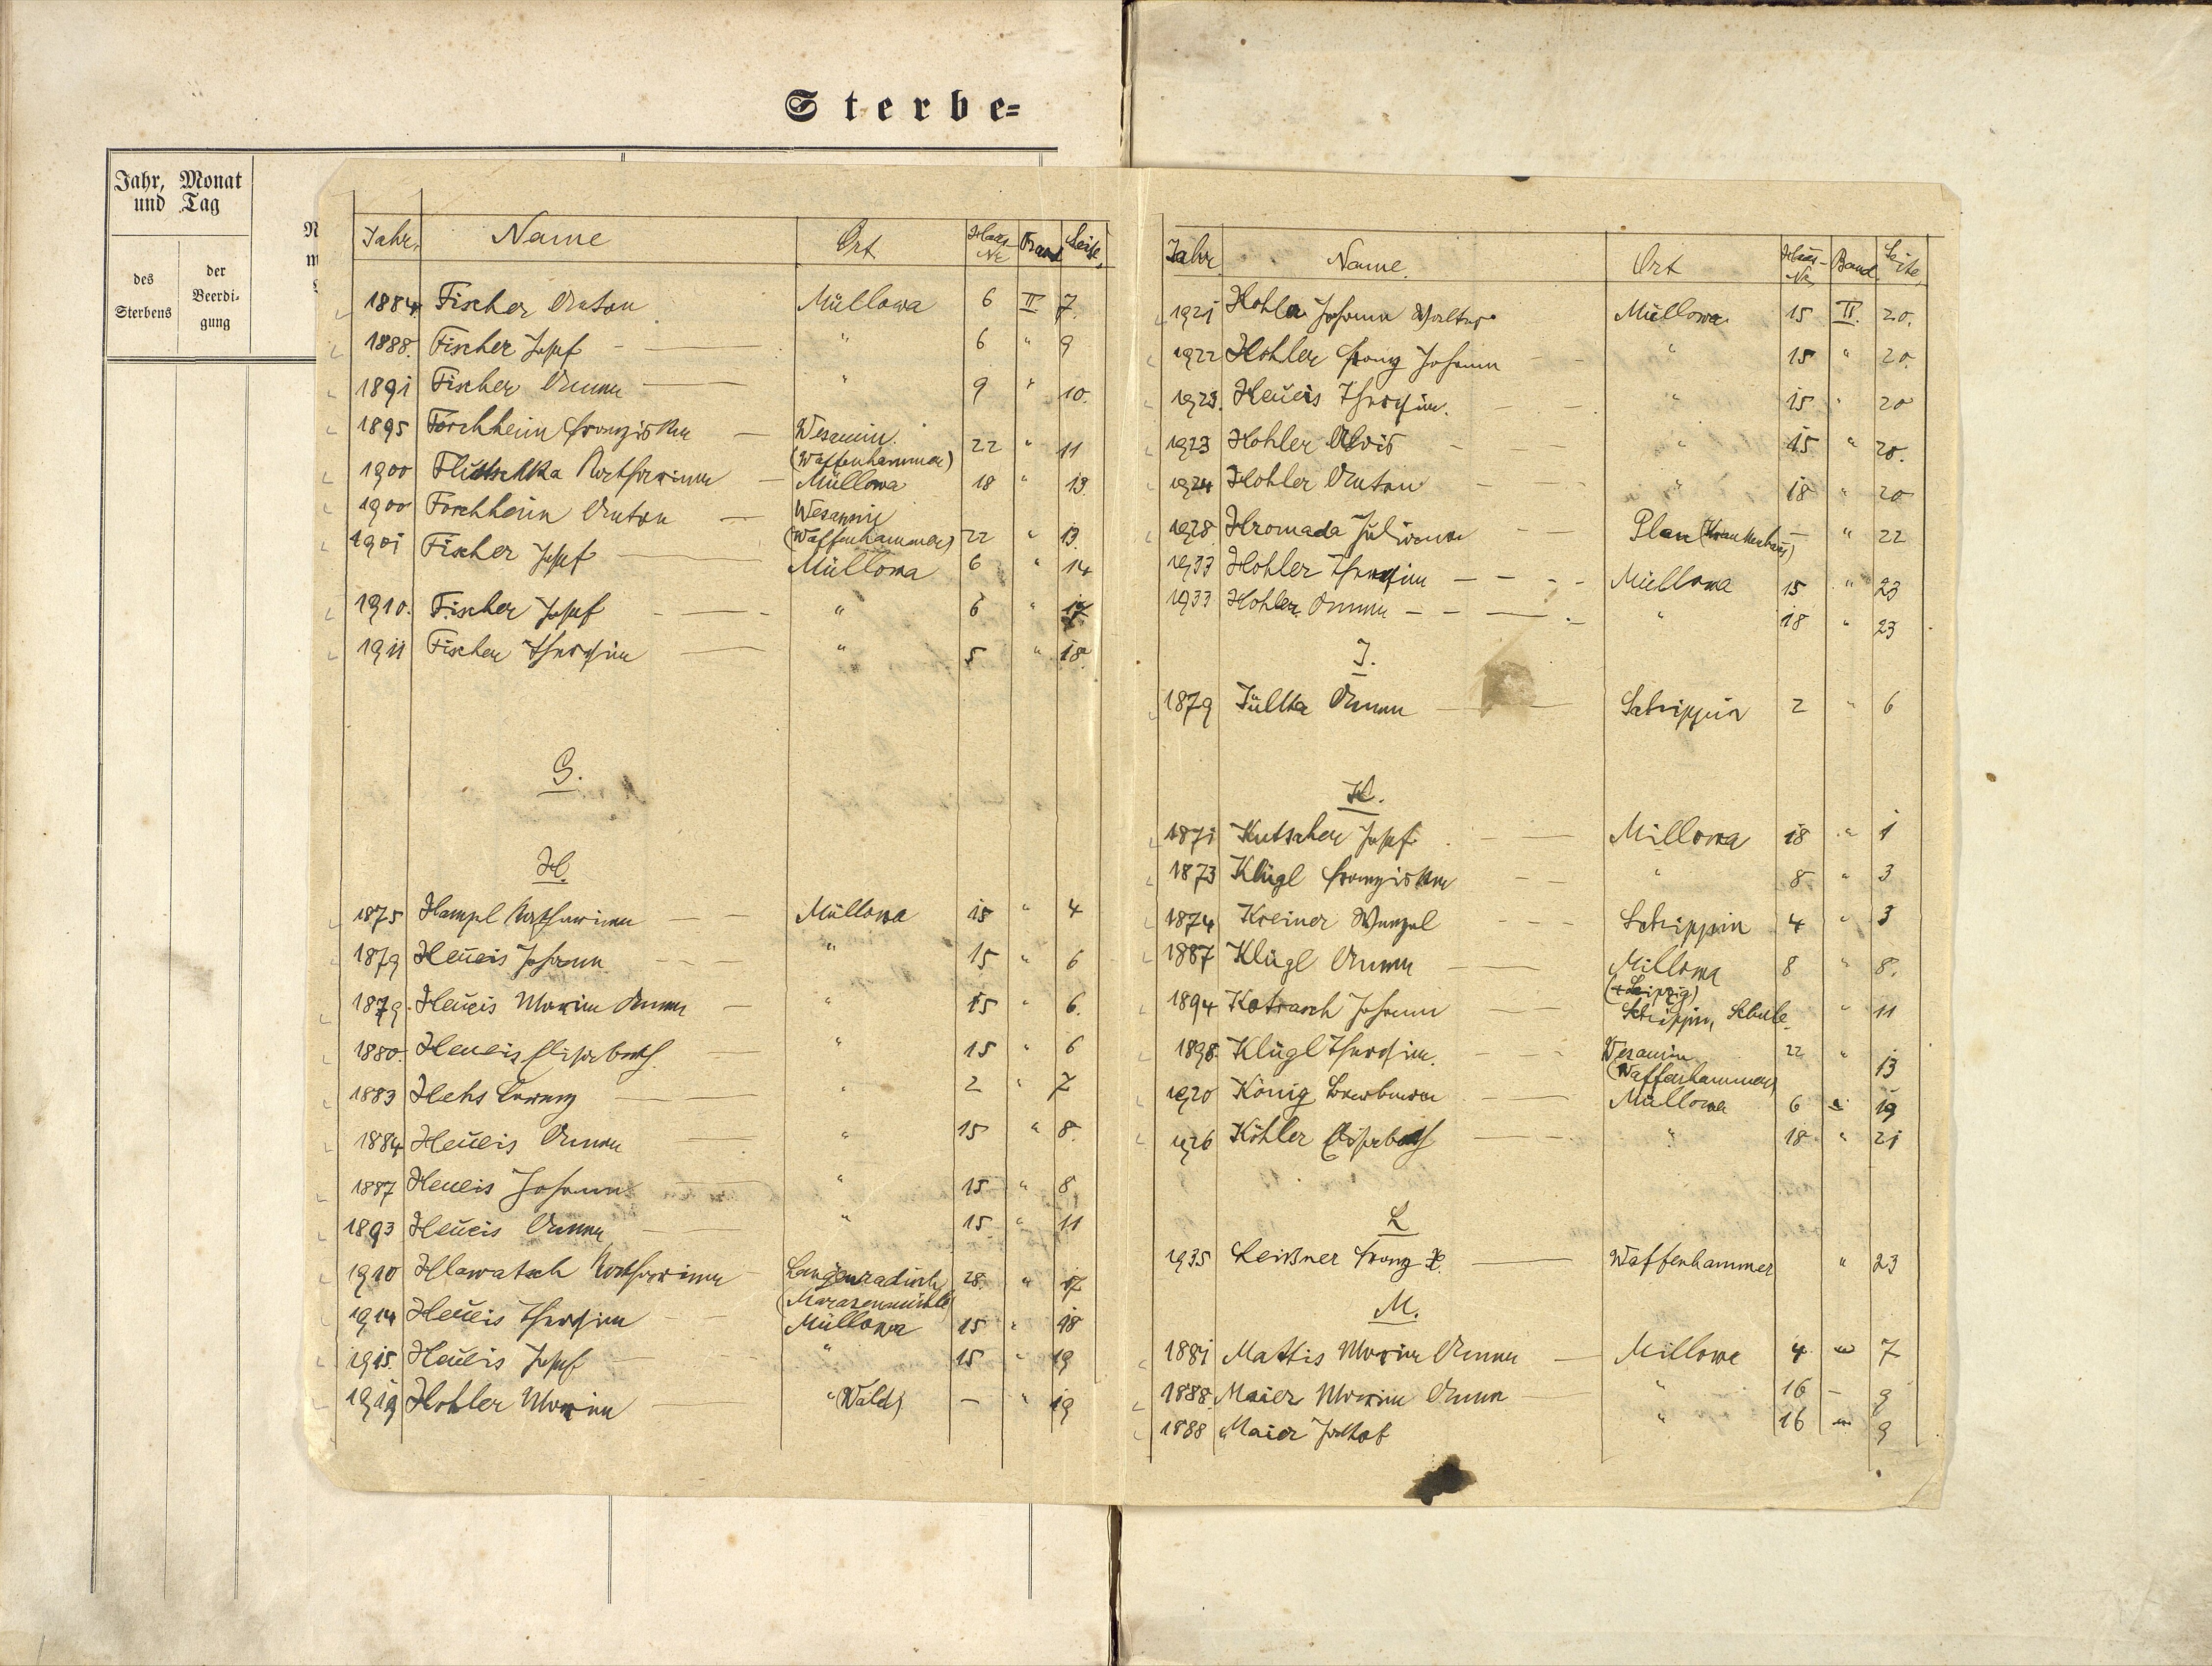 Sterbe=
Jahr, Monat
und Tag
des
Sterbens
der
Beerdi-
gung
Jahr. Name Ort Haus-Nr Band Seite
1884 Fischer Anton Müllowa 6 II 7.
1888. Fischer Josef " 6 " 9
1891 Fischer Anna " 9 " 10.
1895 Forchheim Franziska Wesamin. (Waffenhammer) 22 " 11
1900 Katharina Müllowa 18 " 13.
1900 Forchheim Anton Wesamin (Waffenhammer) 22 " 13.
1901 Fischer Josef Müllowa 6 " 14
1910. Fischer Josef " 6 " 17
1911 Fischer Theresia " 5 " 18.
G.
H.
1875 Hampl Katharina Müllowa 15 " 4
1879 Heueis Johann " 15 " 6
1879. Heueis Maria Anna " 15 " 6.
1880. Heueis Elisabeth " 15 " 6
1883 Hehs Lorenz " 2 " 7
1884 Heueis Anna " 15 " 8.
1887 Heueis Johann " 15 " 8
1893 Heueis Anna " 15 " 11
1910 Hlawatsch Katharina Langenradisch 28. " 17
(Marasenmühle)
1914 Heueis Theresia Müllowa 15 " 18
1915. Heueis Josef " 15 " 19
1919 Hohler Maria " (Wald) — " 19
Jahr. Name. Ort Haus-Nr Band Seite
1921 Hohler Johann Walter Müllowa 15 II. 20.
1922 Hohler Franz Johann " 15 " 20.
1923. Heueis Theresia. " 15 " 20
1923 Hohler Alois " 15 " 20.
1924 Hohler Anton " 18 " 20
1928. Hromada Juliana Plan (Krankenhaus) — " 22
1933 Hohler Theresia Müllowa 15 " 23
1933 Hohler Anna " 18 " 23
J.
1879 Jülka Anna Schrippin 2 " 6
K.
1871 Kutscher Josef Millowa 18 " 1
1873 Klügl Franziska " 8 " 3
1874 Kreiner Wenzel Schrippin 4 " 3
1887 Klügl Anna Millowa 8 " 8.
(+Leipzig)
1894 Kotrasch Johann Schrippin, Schule " 11
1898. Klügl Theresia. Wesamin (Waffenhammer) 22 " 13
1920 König Barbara Müllowa 6 " 19
1926 Köhler Elisabeth " 18 " 21
L
1935 Leißner Franz X. Waffenhammer " 23
M.
1881 Mattis Maria Anna Millowa 4 " 7
1888. Maier Maria Anna " 16 – 9
1888 Maier Jakob " 16 " 9